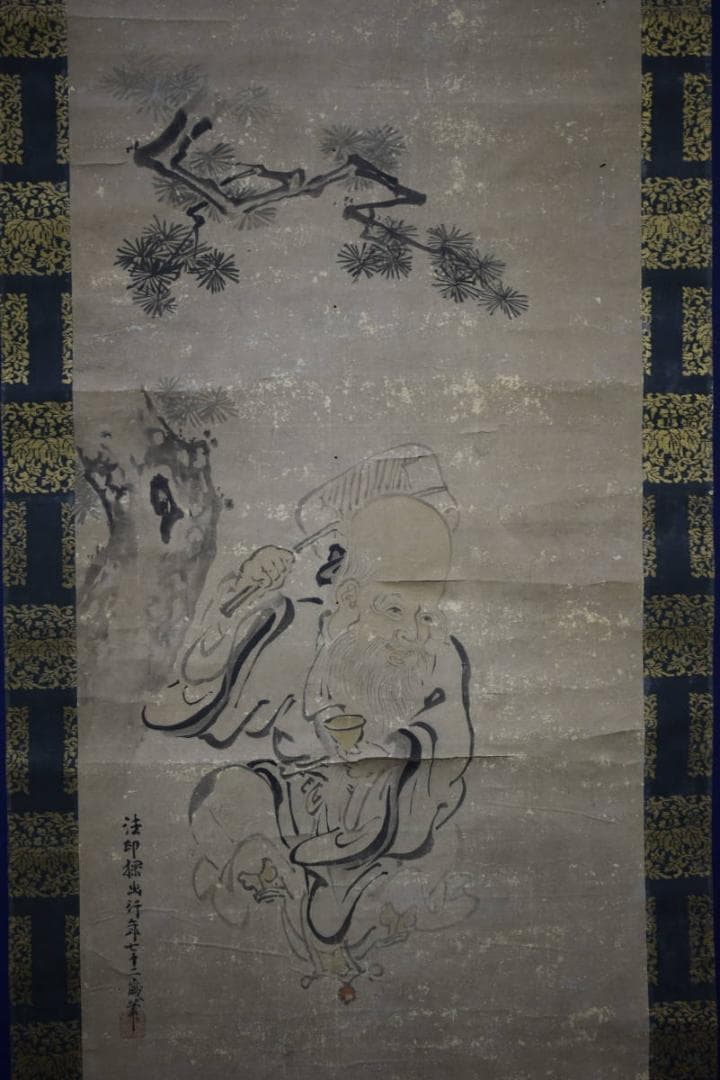 法印探幽行年七十二歳筆